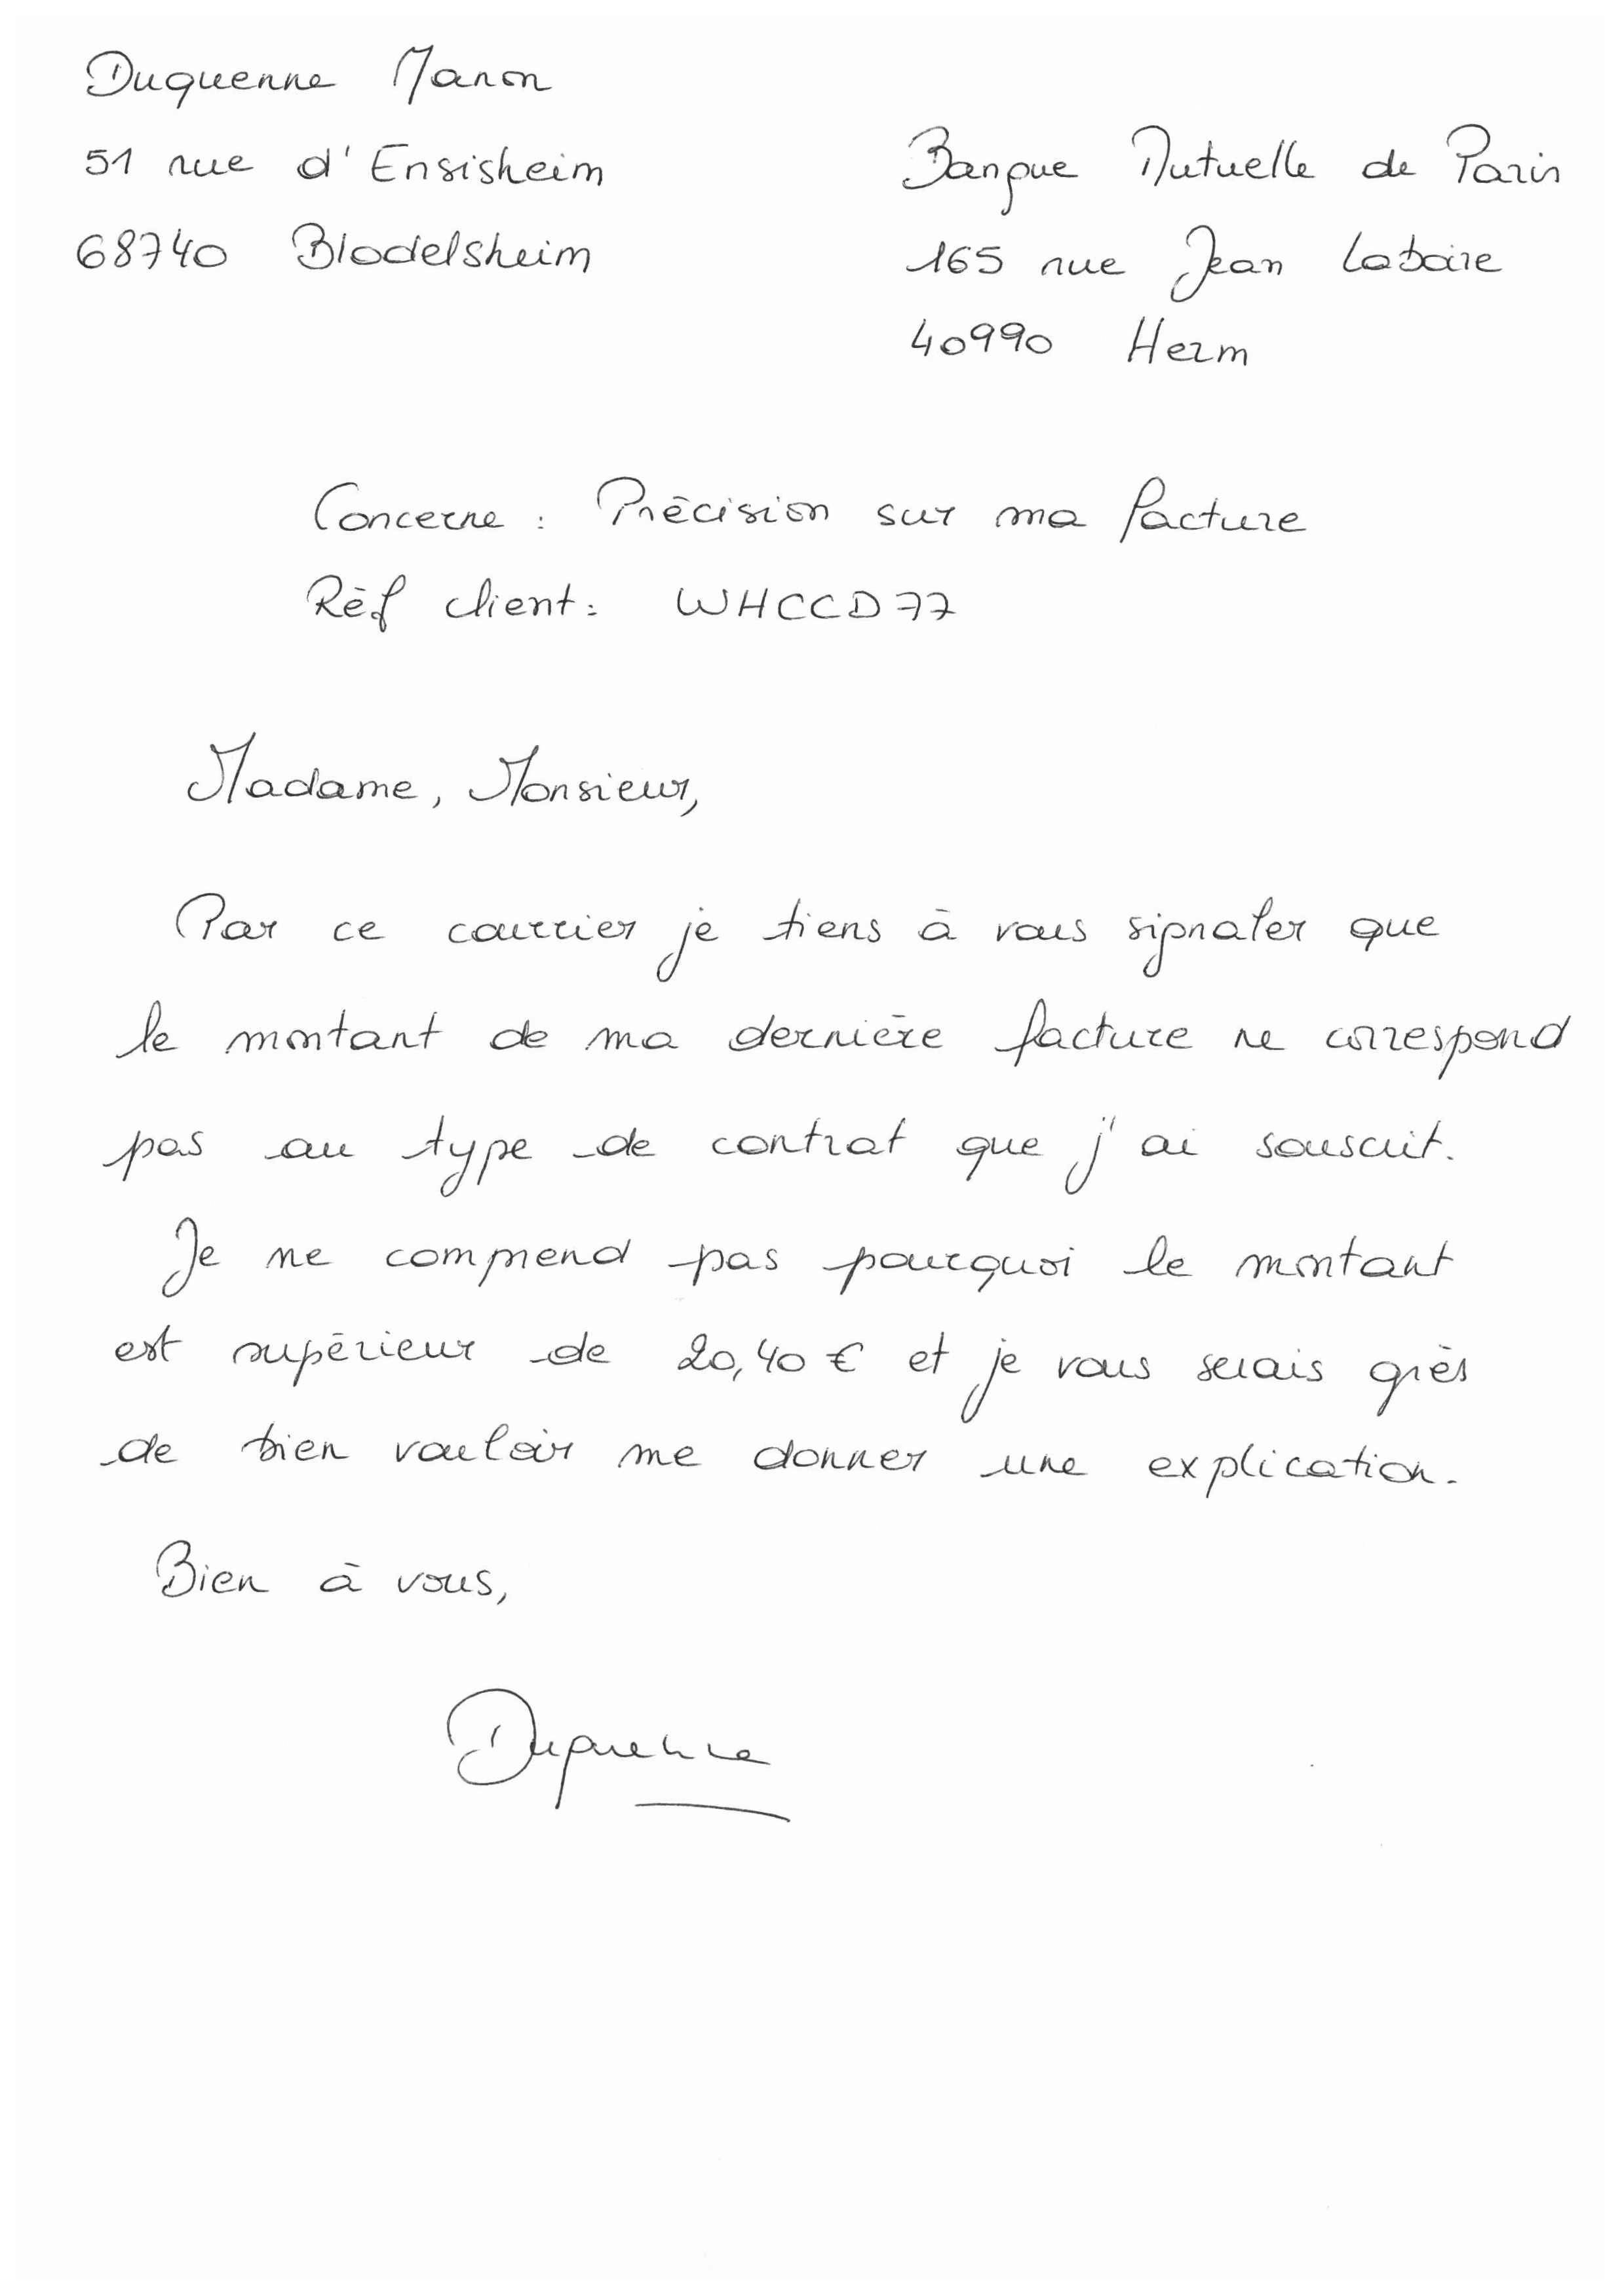 Duquenne Manon
51 rue d'Ensisheim
68740 Blodelsheim
Banque Mutuelle de Paris
165 rue Jean Labaire
40990 Herm
Concerne : Précision sur ma facture
Réf client : WHCCD77
Madame, Monsieur,
Par ce courrier je tiens à vous signaler que
le montant de ma dernière facture ne correspond
pas au type de contrat que j'ai souscrit.
Je ne comprend pas pourquoi le montant
est supérieur de 20,40 € et je vous serais grès
de bien vouloir me donner une explication.
Bien à vous,
Duquenne